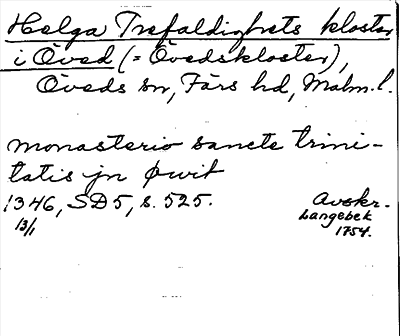 Helga Trefaldighets kloster
i Öved (= Övedskloster),
Öveds sn, Färs hd, Malm. l.
monasterio sancte trini-
tatis jn øwit
1346, SD5, s. 525.
13/1
Avskr.
Langebek
1754.